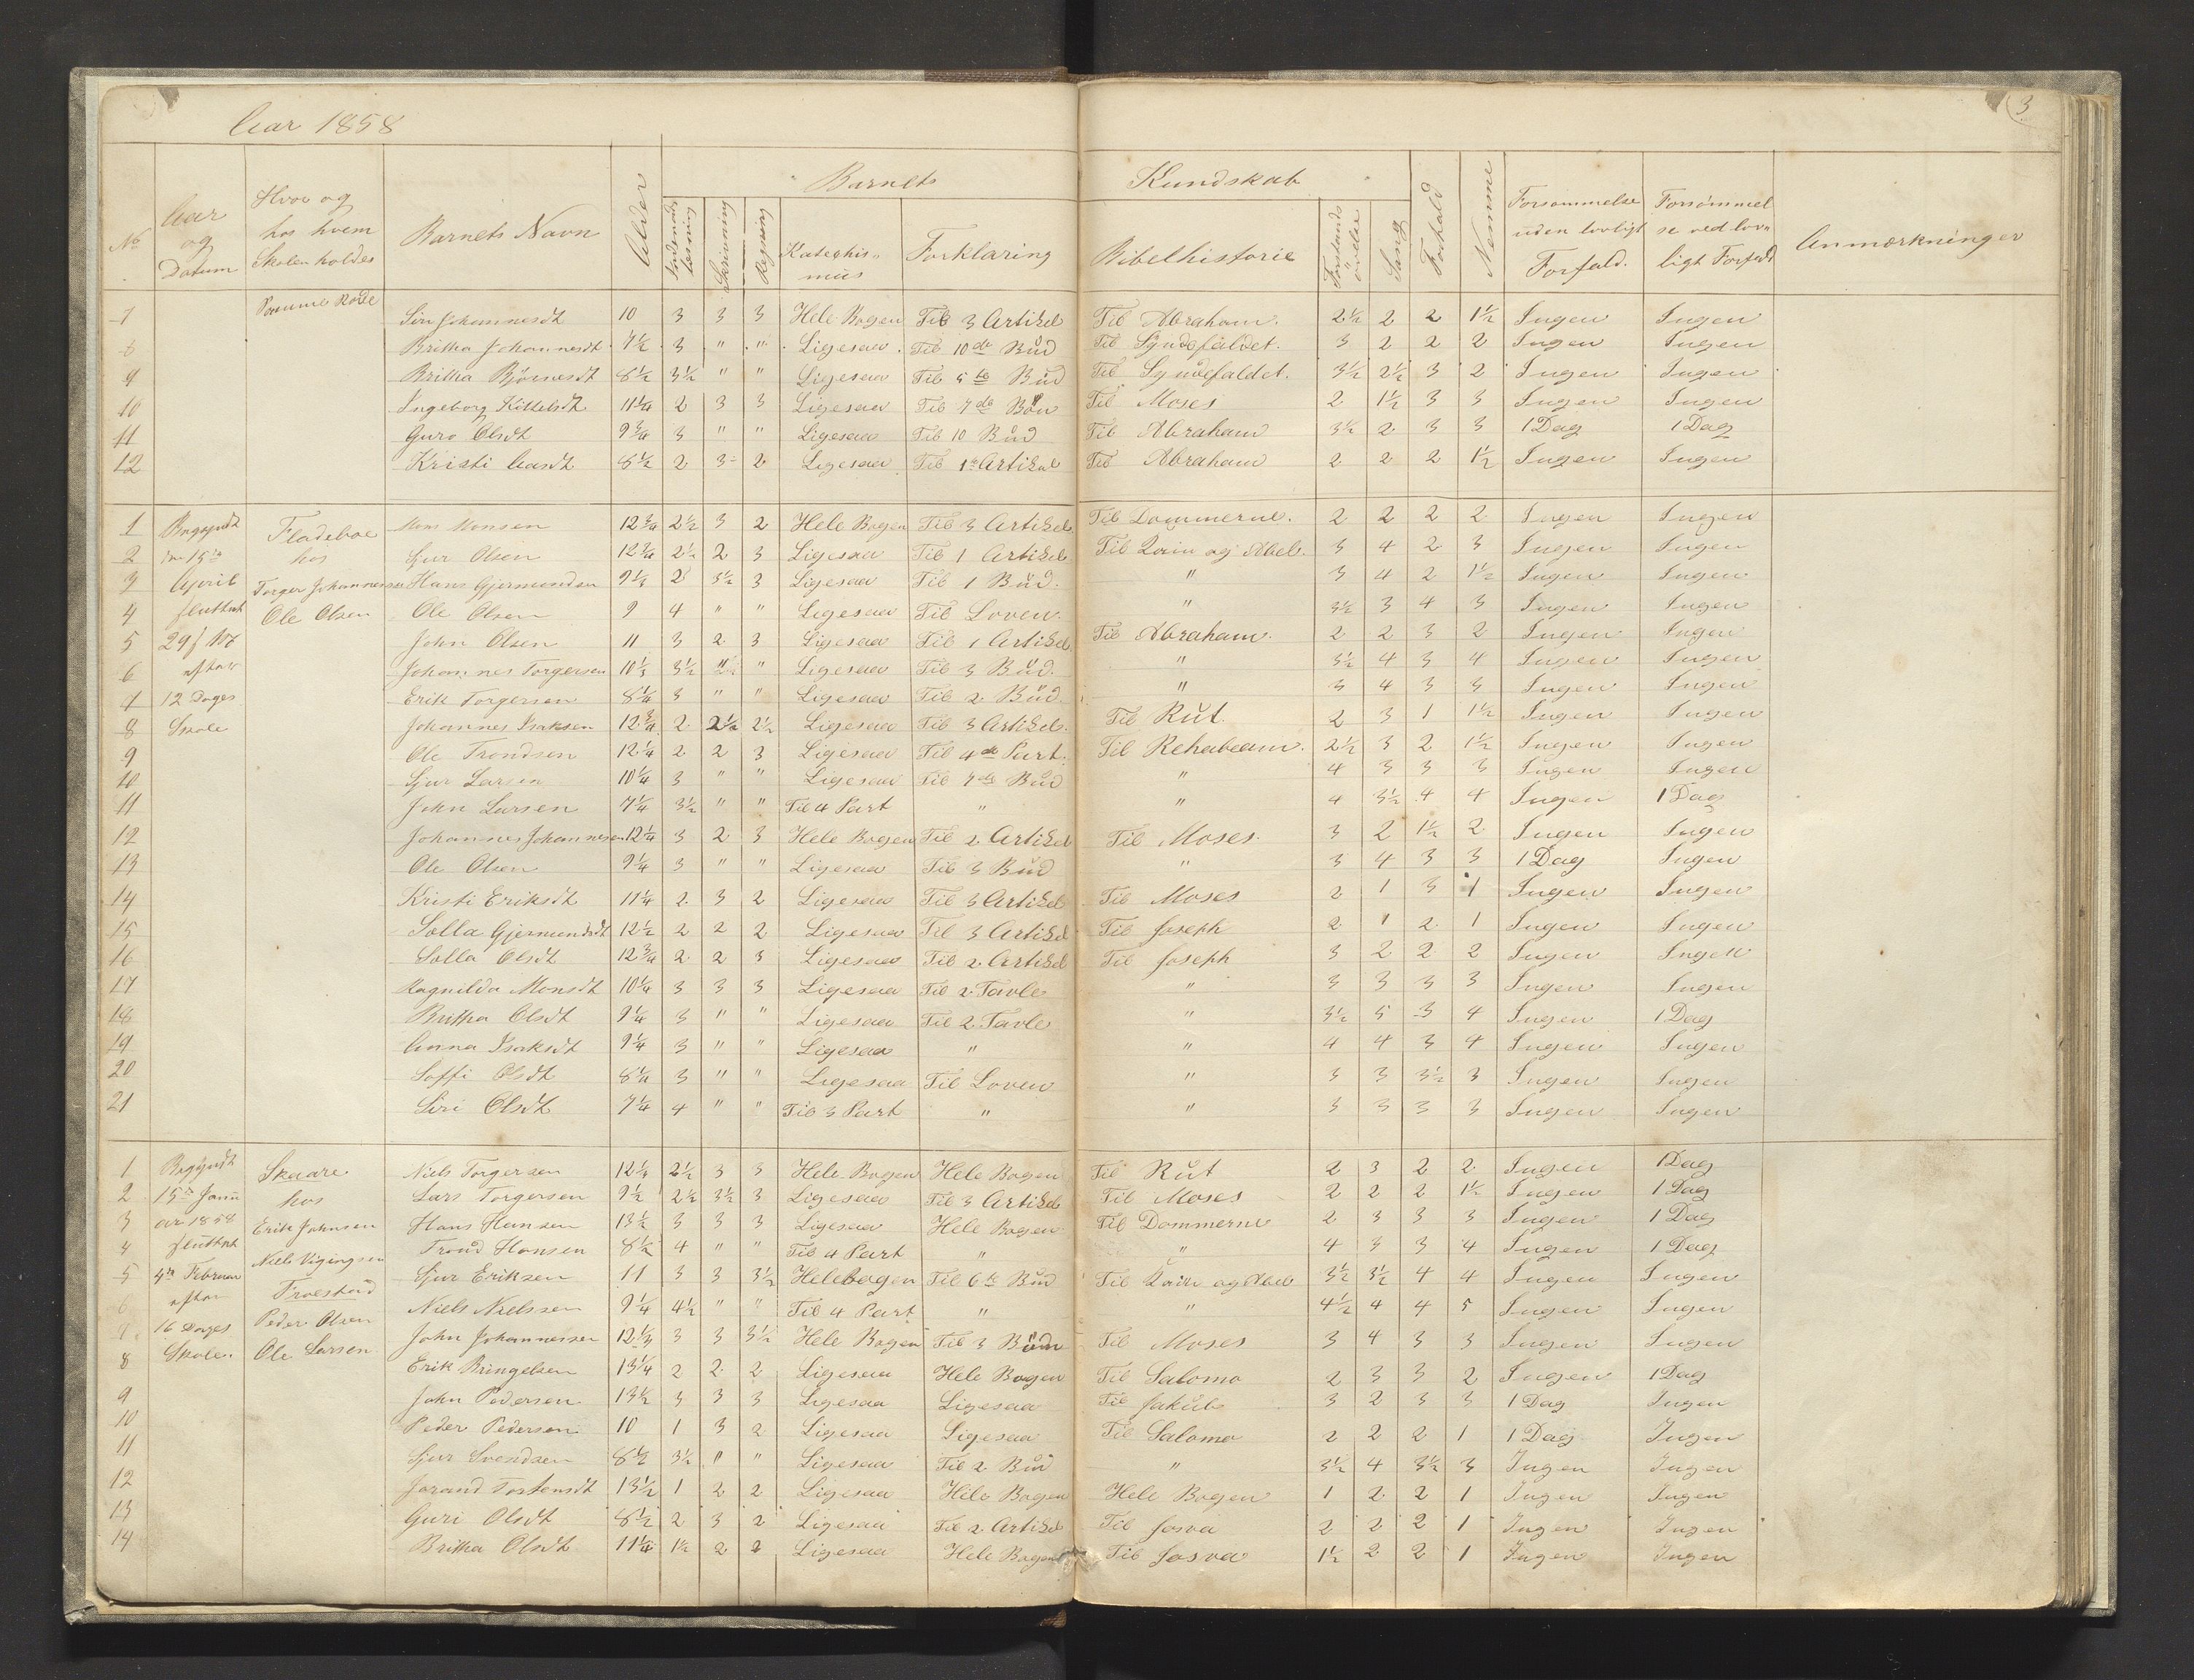 Aar 1858
3
No
Aar og Datum
Hvor og hos hvem Skolen holdes
Barnets Navn
Alder
Barnets Kundskab
Skrivning
Regning
Kateghis„ mus
Forklaring
Bibelhistorie
Forstands övelse
Sang
Forhold
Nemme
Forsommelse uden lovligt Forfald.
Forsömmel se ved lov„ ligt Forfald
Anmærkninger
7 Siri Johannesdt 10 3 3 3 Hele Bogen Til 3 Artikel Til Abraham. 2½ 2 2 1½ Ingen Ingen
8 Britha Johannesdt 7½ 3 " " Ligesaa Til 10de Bŭd Til Syndefaldet. 3 2 2 2 Ingen Ingen
9 Britha Björnesdt 8½ 3½ " " Ligesaa Til 5te Bŭd Til Syndefaldet. 3½ 2½ 3 2 Ingen Ingen
10 Ingeborg Kittelsdt 11¼ 2 3 3 Ligesaa Til 7de Bön Til Moses 2 1½ 3 3 Ingen Ingen
11 Guro Olsdt 9¾ 3 " " Ligesaa Til 10 Bŭd Til Abraham 3½ 2 3 3 1 Dag 1 Dag
12 Kristi Aasdt 8½ 2 3 2 Ligesaa Til 1te Artikel Til Abraham 2 2 2 1½ Ingen Ingen
1 Begyndt Fladeboe Mons Monsen 12¾ 2½ 3 2 Hele Bogen Til 3 Artikel Til Dommerne. 2 2 2 2 Ingen Ingen
2 15de hos Sjur Olsen 12¾ 2½ 2 3 Ligesaa Til 1 Artikel Til Kain og Abel. 3 4 2 3 Ingen Ingen
3 April Torger Johannessen Hans Gjermundsen 9½ 2 3½ 3 Ligesaa Til 1 Bŭd. " 3 4 2 1½ Ingen Ingen
4 sluttet Ole Olsen Ole Olsen 9 4 " " Ligesaa Til Loven. " 3½ 3 4 3 Ingen Ingen
5 29 John Olsen 11 3 2 3 Ligesaa Til 1 Artikel Til Abraham. 2 2 3 2 Ingen Ingen
6 efter Johannes Torgersen 10½ 3½ " " Ligesaa Til 3 Bŭd. " 3½ 4 3 4 Ingen Ingen
7 12 Dages Erik Torgersen 8¼ 3 " " Ligesaa Til 2 Bŭd. " 3 4 3 3 Ingen Ingen
8 Skole Johannes Isaksen 12¾ 2 2½ 2½ Ligesaa Til 3 Artikel. Til Rŭt. 2 3 1 1½ Ingen Ingen
9 Ole Trondsen 12¼ 2 2 3 Ligesaa Til 4de Part. Til Rehabeam. 2½ 3 2 1½ Ingen Ingen
10 Sjur Larsen 10¼ 3 " " Ligesaa Til 7de Bŭd " 4 3 3 3 Ingen Ingen
11 John Larsen 7¼ 3½ " " Til 4 Part " " 4 3½ 4 4 Ingen 1 Dag
12 Johannes Johannesen 12¼ 3 2 3 Hele Bogen Til 2 Artikel Til Moses. 3 2 1½ 2 Ingen Ingen
13 Ole Olsen 9¼ 3 " " Ligesaa Til 3 Bŭd " 3 4 3 3 1 Dag Ingen
14 Kristi Eriksdt 11¼ 2 3 2 Ligesaa Til 3 Artikel Til Moses 2 1 3 1 Ingen Ingen
15 Solla Gjermundsdt 12½ 2 2 2 Ligesaa Til 3 Artikel Til Joseph 2 1 2 1 Ingen Ingen
16 Solla Olsdt 12¾ 2 2 3 Ligesaa Til 2 Artikel Til Joseph 3 2 2 2 Ingen Ingen
17 Magnilda Monsdt 10¼ 3 3 3 Ligesaa Til 2 Tavle " 3 3 3 3 Ingen Ingen
18 Britha Olsdt 9¼ 3 " " Ligesaa Til 2 Tavle " 3½ 5 3 4 Ingen 1 Dag
19 Anna Isaksdt 9¼ 3 " " Ligesaa " " 4 4 3 4 Ingen Ingen
20 Soffi Olsdt 8¼ 3 " " Ligesaa Til Loven " 3 3 3½ 3 Ingen Ingen
21 Siri Olsdt 7¼ 4 " " Til 3 Part " " 3 3 3 3 Ingen Ingen
1 Begyndt Skaare Niels Torgersen 12¼ 2½ 3 3 Hele Bogen Hele Bogen Til Rŭt 2 3 2 2 Ingen 1 Dag
2 15de Janŭ hos Lars Torgersen 9½ 2½ 3½ 3 Ligesaa Til 3 Artikel Til Moses 2 2 2 1½ Ingen 1 Dag
3 ar 1858 Erik Johnsen Hans Hansen 13½ 3 3 3 Ligesaa Hele Bogen Til Dommerne 2 3 3 3 Ingen 1 Dag
4 sluttet Niels Vigingsen Trond Hansen 8½ 4 " " Til 4 Part " " 4 3 3 4 Ingen 1 Dag
5 Februar Troestad Sjur Eriksen 11 3 3 3½ Helebogen Til 6te Bŭd Til Kain og Abel 3½ 3½ 4 4 Ingen Ingen
6 efter Peder Olsen Niels Nielssen 9¼ 4½ " " Til 4 Part " " 4½ 4 4 5 Ingen Ingen
7 16 Dages Ole Larsen John Johannessen 12⅓ 3 3 3½ Hele Bogen Til 3 Bön Til Moses 3 4 3 3 Ingen Ingen
8 Skole. Erik Bringelsen 13¼ 2 2 2 Ligesaa Hele Bogen Til Salomo 2 3 3 2 Ingen 1 Dag
9 John Pedersen 13½ 3 3 3 Ligesaa Ligesaa Til Jakŭb 3 2 3 3 1 Dag Ingen
10 Peder Pedersen 10 1 3 2 Ligesaa Ligesaa Til Salomo 2 2 2 1 1 Dag Ingen
11 Sjur Svendsen 8½ 3½ " " Ligesaa Til 2 Bŭd " 3½ 4 3½ 3 Ingen Ingen
12 Jorand Tostensdt 13½ 1 2 2 Ligesaa Hele Bogen Hele Bogen 1 2 2 1 Ingen Ingen
13 Guri Olsdt 8½ 2 3 2 Ligesaa Til 2 Artikel Til Josva 2 2 2 1 Ingen Ingen
14 Britha Olsdt 11¼ 1½ 2 2 Ligesaa Hele Bogen Til Josva 1½ 2 2 1 Ingen Ingen